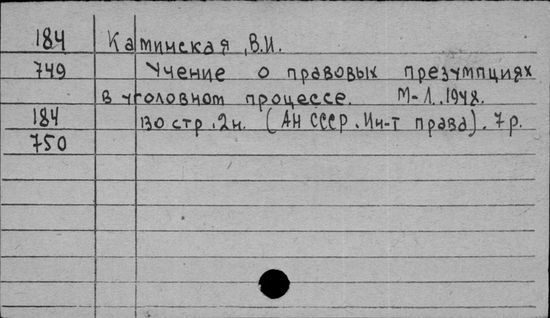 184 Каминская, В.И.
749 Учение о правовых презумпциях
в уголовном процессе. М-Л., 1948.
184 130 стр. 2н. (АН СССР. Ин-т права). 7р.
750